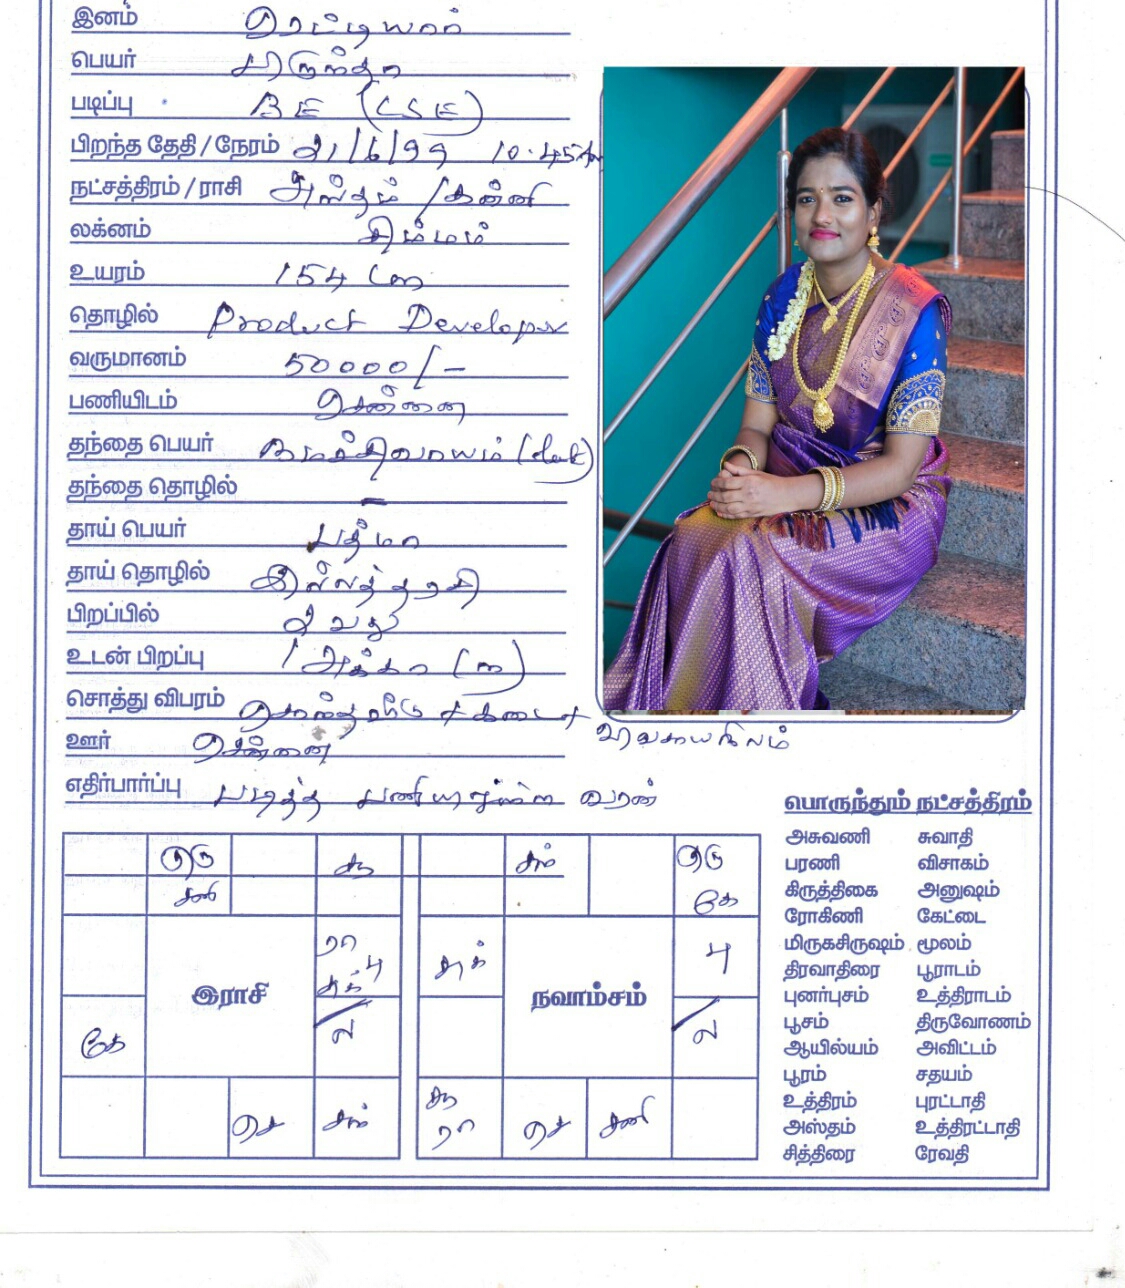 இனம் ரெட்டியார்
பெயர்
படிப்பு BE (CSE)
பிறந்த தேதி / நேரம் 21/6/99 10.45Am
நட்சத்திரம் / ராசி அஸ்தம் / கன்னி
லக்னம் சிம்மம்
உயரம் 154 Cm
தொழில் Product Developer
வருமானம் 50000/-
பணியிடம் சென்னை
தந்தை பெயர் (late)
தந்தை தொழில் -
தாய் பெயர் பத்மா
தாய் தொழில் இல்லத்தரசி
பிறப்பில் 2 வது
உடன் பிறப்பு 1 அக்கா (m)
சொத்து விபரம் சொந்த வீடு + கடை +
விவசாயநிலம்
ஊர் சென்னை
எதிர்பார்ப்பு படித்த பணியாளுள்ள வரன்
குரு சூ சந் குரு
சனி கே
ரா பு சுக் சுக் பு
இராசி நவாம்சம்
கே ல ல
செ சந் சூ ரா செ சனி
பொருந்தும் நட்சத்திரம்
அசுவணி சுவாதி
பரணி விசாகம்
கிருத்திகை அனுஷம்
ரோகிணி கேட்டை
மிருகசிருஷம் மூலம்
திரவாதிரை பூராடம்
புனர்புசம் உத்திராடம்
பூசம் திருவோணம்
ஆயில்யம் அவிட்டம்
பூரம் சதயம்
உத்திரம் புரட்டாதி
அஸ்தம் உத்திரட்டாதி
சித்திரை ரேவதி